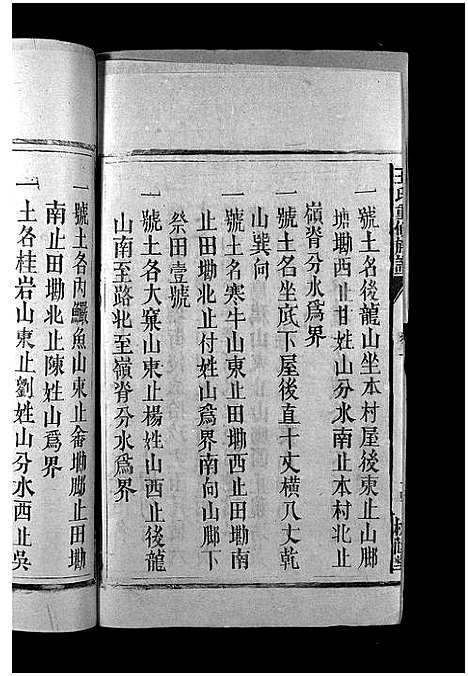 王氏重修族譜
一號土名後龍山坐本村屋後東止山腳
塘墈西止甘姓山分水南止本村北止
嶺脊分水爲界
一號土名坐底下屋後直十丈橫八丈乾
山巽向
一號土名寒牛山東止田墈西止田墈南
止田墈北止付姓山爲界南向山腳下
祭田壹號
一號土名大窠山東止楊姓山西止後龍
山南至路北至嶺脊分水爲界
一號土名內鱖魚山東止 墈腳止田墈
南止田墈北止陳姓山爲界
一土名桂岩山東止劉姓山分水西止吳